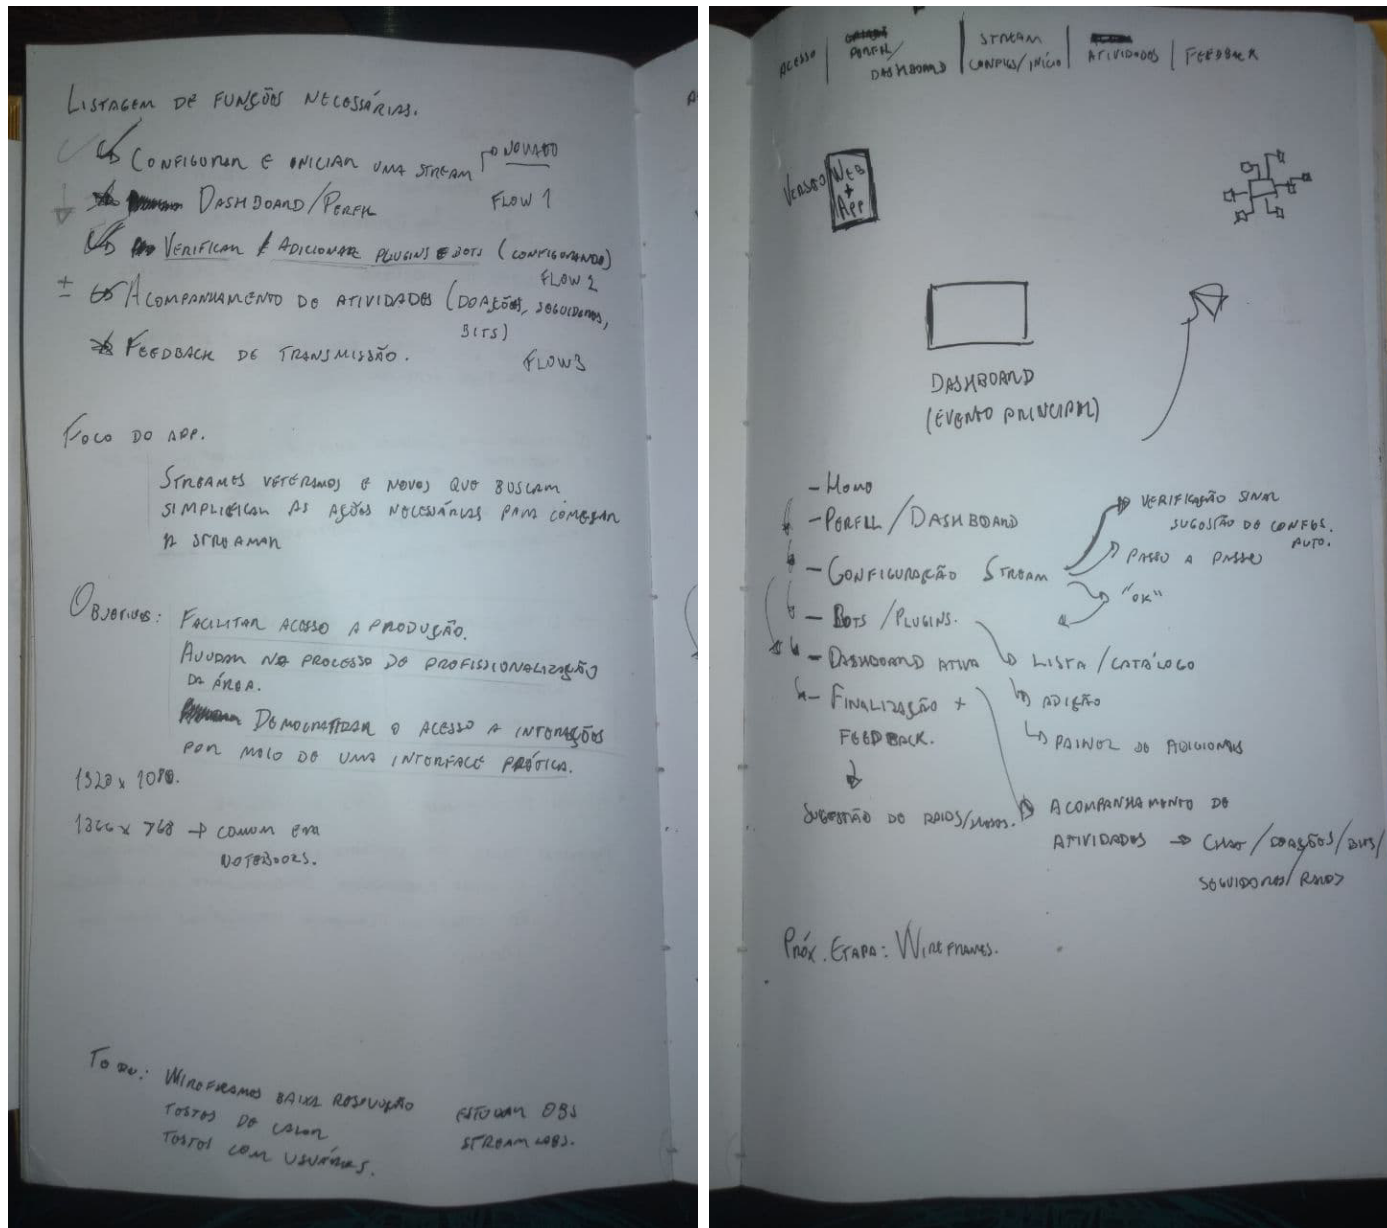 LISTAGEM DE FUNÇÕES NECESSÁRIAS.
CONFIGURAR E INICIAR UMA STREAM
DASHBOARD/PERFIL FLOW 1
VERIFICAR E ADICIONAR PLUGINS E BOTS (CONFIGURANDO)
FLOW 2
± ACOMPANHAMENTO DE ATIVIDADES (DOAÇÕES, SEGUIDORES,
BITS)
FEEDBACK DE TRANSMISSÃO.
FLOW 3
FOCO DO APP.
STREAMES VETERAMOS E NOVOS QUE BUSCAM
SIMPLIFICAR AS AÇÕES NECESSÁRIAS PARA COMEÇAR
A STREAMAR
OBJETIVOS: FACILITAR ACESSO A PRODUÇÃO.
AJUDAR NO PROCESSO DE PROFISSIONALIZAÇÃO
DA ÁREA.
DEMOCRATIZAR O ACESSO A INTERAÇÕES
POR MEIO DE UMA INTERFACE PRÁTICA.
1920 x 1080.
1366 x 768 → COMUM EM
NOTEBOOKS.
TO DO: WIREFRAMES BAIXA RESOLUÇÃO
TESTES DE CALOR
TESTES COM USUÁRIOS.
ESTUDAR OBS
STREAMLABS.
ACESSO | PERFIL/ DASHBOARD | STREAM CONFIGS/INÍCIO | ATIVIDADES | FEEDBACK
VERSÃO WEB
+
APP
DASHBOARD
(EVENTO PRINCIPAL)
- HOME
- PERFIL / DASHBOARD
- CONFIGURAÇÃO STREAM
VERIFICAÇÃO SINAL
SUGESTÃO DE CONFIGS.
AUTO.
PASSO A PASSO
"OK"
- BOTS / PLUGINS.
- DASHBOARD ATIVA
LISTA / CATÁLOGO
ADIÇÃO
PAINEL DE ADICIONAIS
- FINALIZAÇÃO +
FEEDBACK.
SUGESTÃO DE RAIDS/
ACOMPANHAMENTO DE
ATIVIDADES → CHAT / DOAÇÕES / BITS /
SEGUIDORES / RAIDS
PRÓX. ETAPA: WIREFRAMES.